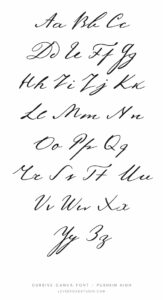 Aa Bb Cc
Dd Ee Ff Gg
Hh Ii Jj Kk
Ll Mm Nn
Oo Pp Qq
Rr Ss Tt Uu
Vv Ww Xx
Yy Zz
CURSIVE CANVA FONT -